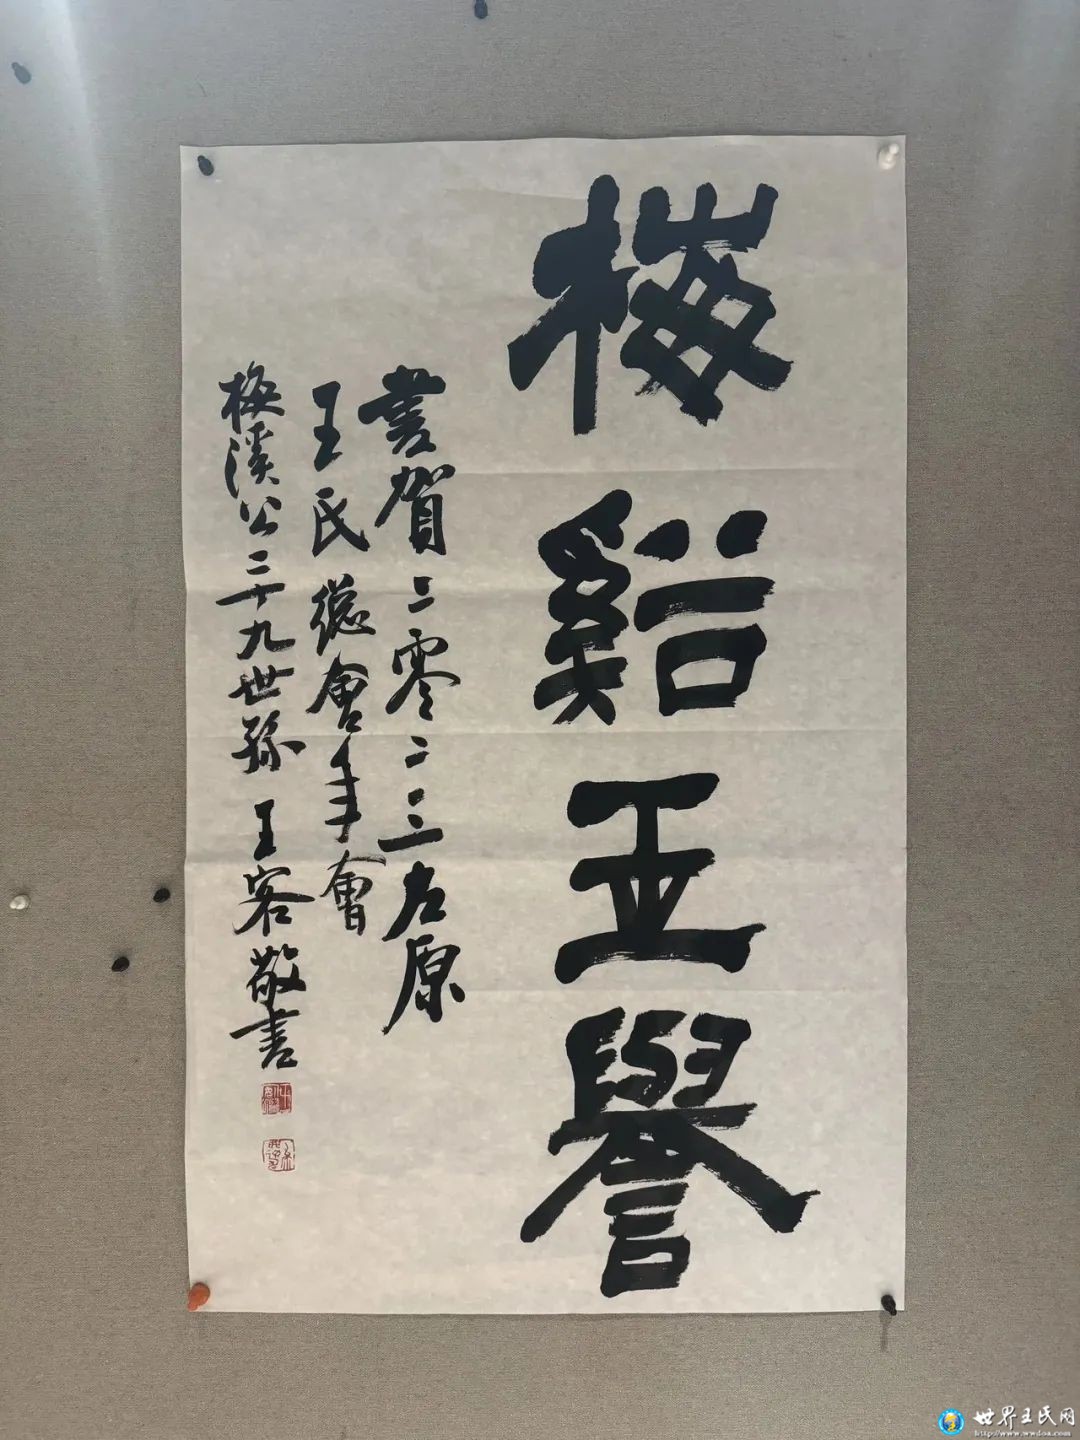 梅谿正譽
書賀二零二三太原
王氏總會年會
梅溪公二十九世孫 王客敬書
世界王氏网
http://www.wwdoa.com